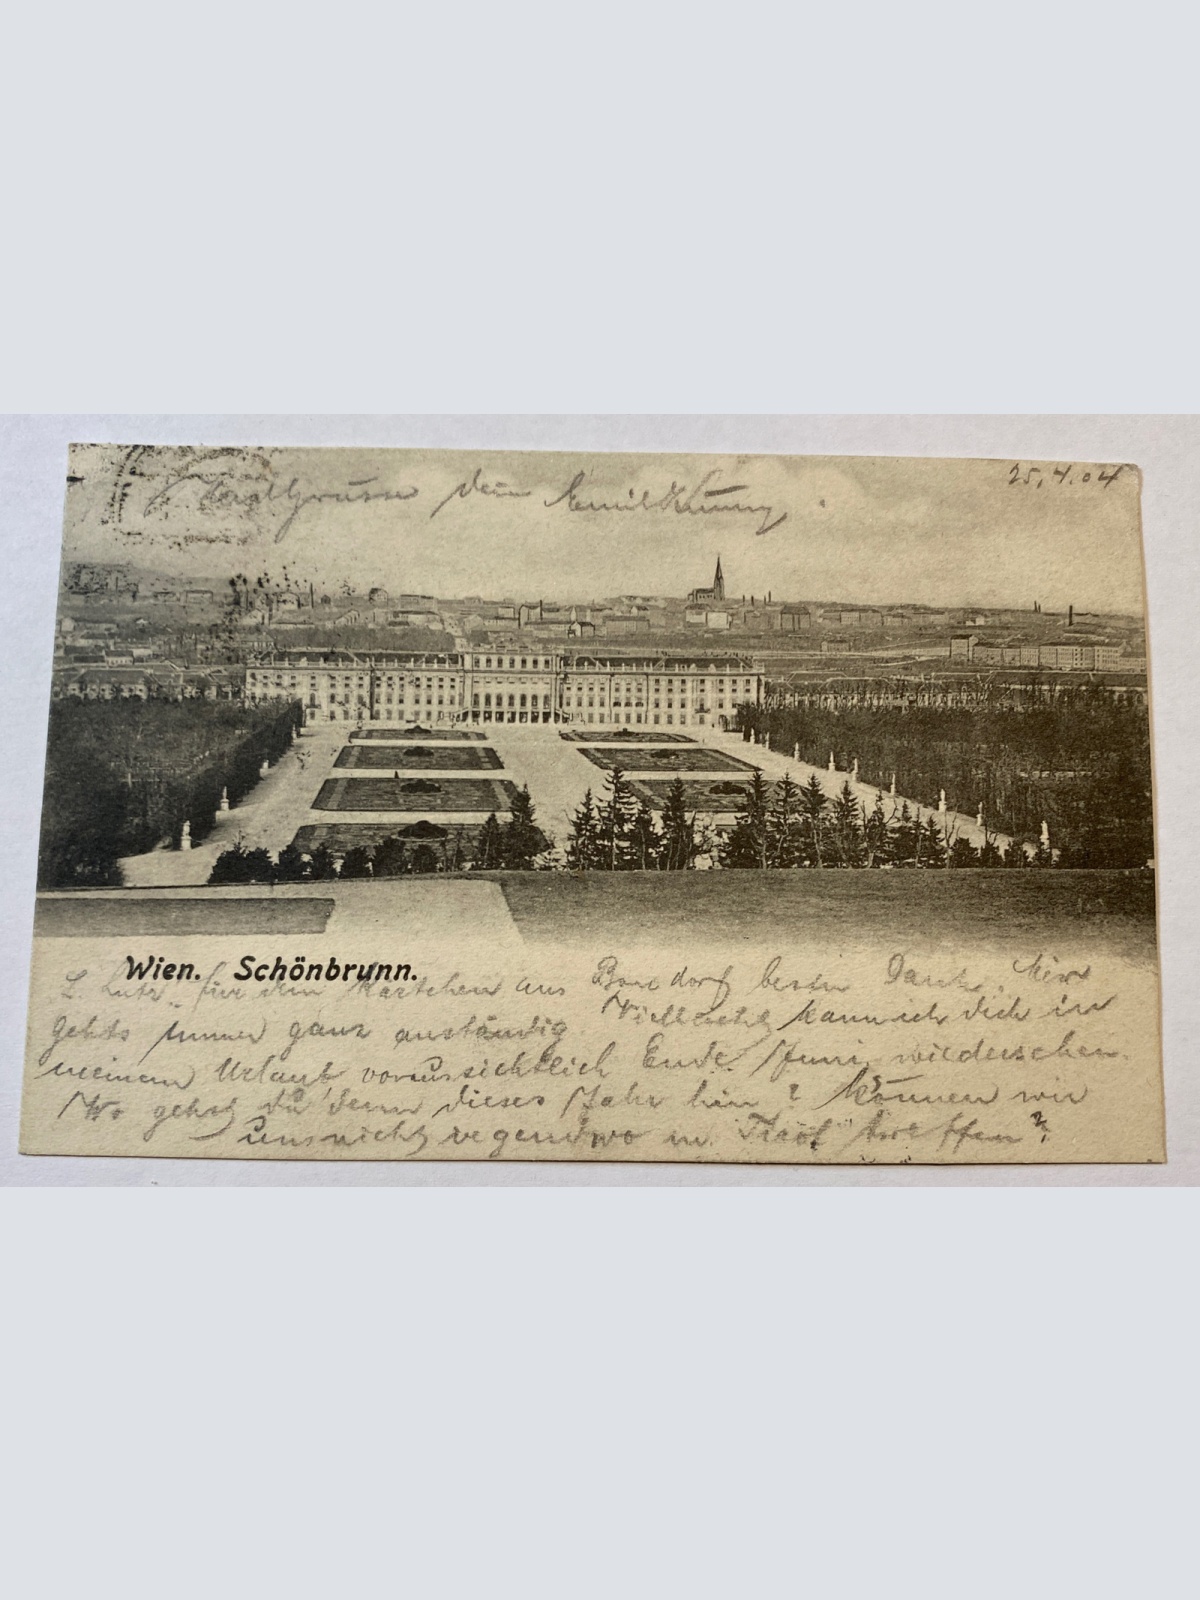 Grüsse dein Emil
25.4.04
Wien. Schönbrunn.
L. Lutz, für dein Kärtchen aus Bondorf besten Dank. Mir
gehts immer ganz anständig. Vielleicht kann ich dich in
meinem Urlaub, voraussichtlich Ende Juni, wiedersehen.
Wo gehst du denn dieses Jahr hin? Können wir
uns nicht irgendwo in Tirol treffen?